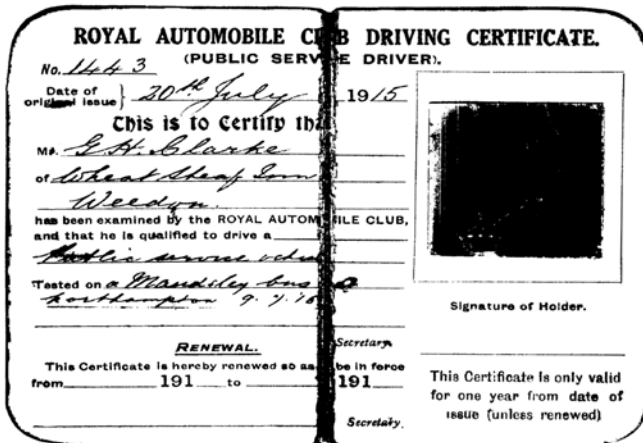 ROYAL AUTOMOBILE CLUB DRIVING CERTIFICATE.
(PUBLIC SERVICE DRIVER).
No. 1443
Date of original issue } 20th July 1915
This is to Certify tha
Mr. G.H. Clarke
of Wheat Sheaf Inn
Weedon.
has been examined by the ROYAL AUTOMOBILE CLUB,
and that he is qualified to drive a
Public service vehic
Tested on a Mandsley bus
Northampton 9.7.15
Secretary
RENEWAL.
This Certificate is hereby renewed so as be in force
from 191 to 191
Secretary.
Signature of Holder.
This Certificate is only valid
for one year from date of
issue (unless renewed)